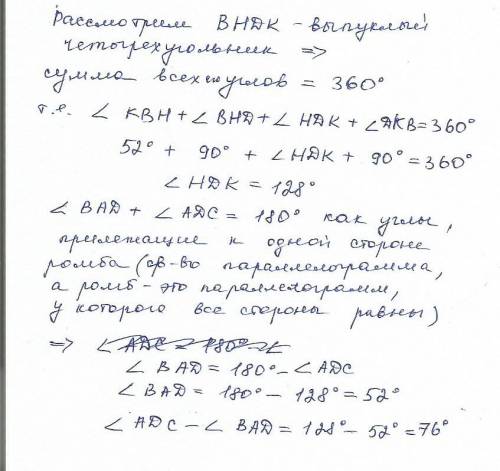 Рассмотрим BHДK - выпуклый
четырехугольник =>
сумма всех его углов = 360°
т.е. ∠ KBH + ∠ BHD + ∠ HДK + ∠ДKB = 360°
52° + 90° + ∠HДK + 90° = 360°
∠ HДK = 128°
∠ BAD + ∠ ADC = 180° как углы,
прилежащие к одной стороне
ромба (св-во параллелограмма,
а ромб - это параллелограмм,
у которого все стороны равны)
=> ∠ ADC = 180° - ∠
∠ BAD = 180° - ∠ ADC
∠ BAD = 180° - 128° = 52°
∠ ADC - ∠ BAD = 128° - 52° = 76°